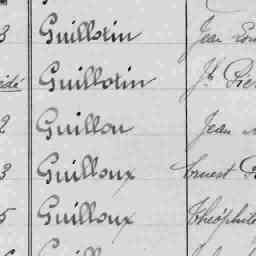 3 Guillotin Jean
Guillotin Jh
2 Guillou Jean
3 Guilloux Ernest
5 Guilloux Théophile